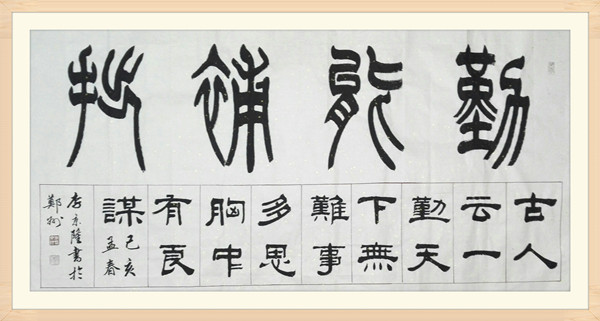 勤能補拙
古人
云一
勤天
下無
難事
多思
胸中
有良
謀
己亥
孟春
京隆書於
鄭州